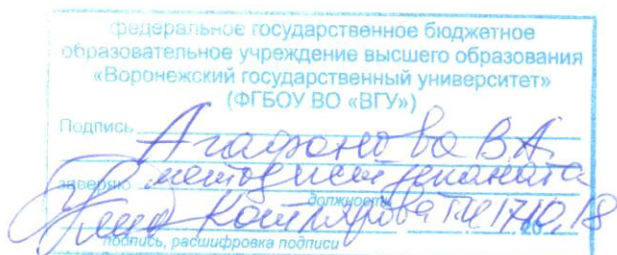 федеральное государственное бюджетное
образовательное учреждение высшего образования
«Воронежский государственный университет»
(ФГБОУ ВО «ВГУ»)
Подпись Агафонова В.А.
заверяю методист деканата
должность
Котлярова 17.10.18
20
подпись, расшифровка подписи